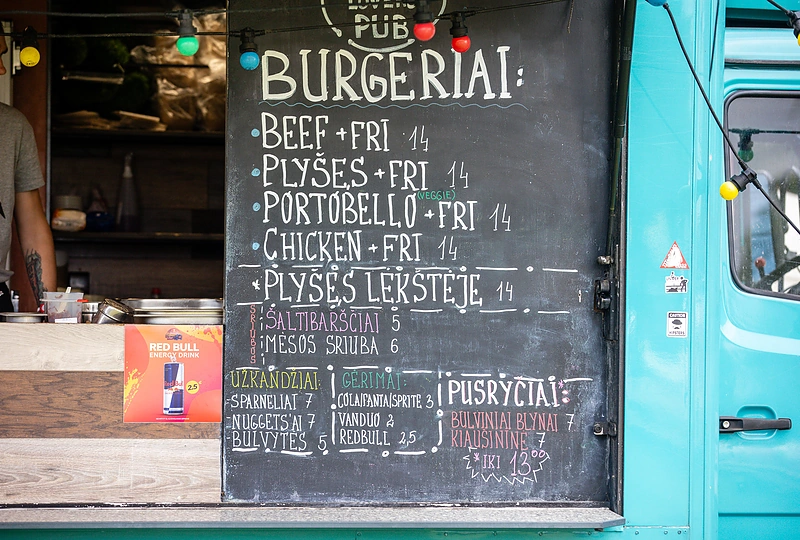 PUB
BURGERIAI:
BEEF + FRI 14
PLYŠĖS + FRI 14
(VEGGIE)
PORTOBELLO + FRI 14
CHICKEN + FRI 14
* PLYŠĖS LĖKŠTĖJE 14
SRIUBOS
ŠALTIBARŠČIAI 5
MĖSOS SRIUBA 6
UŽKANDŽIAI:
- SPARNELIAI 7
- NUGGETS'AI 7
- BULVYTĖS 5
GĖRIMAI:
COLA/FANTA/SPRITE 3
VANDUO 2
REDBULL 2,5
PUSRYČIAI:*
BULVINIAI BLYNAI 7
KIAUŠININĖ 7
*IKI 13°°
RED BULL
ENERGY DRINK
2,5